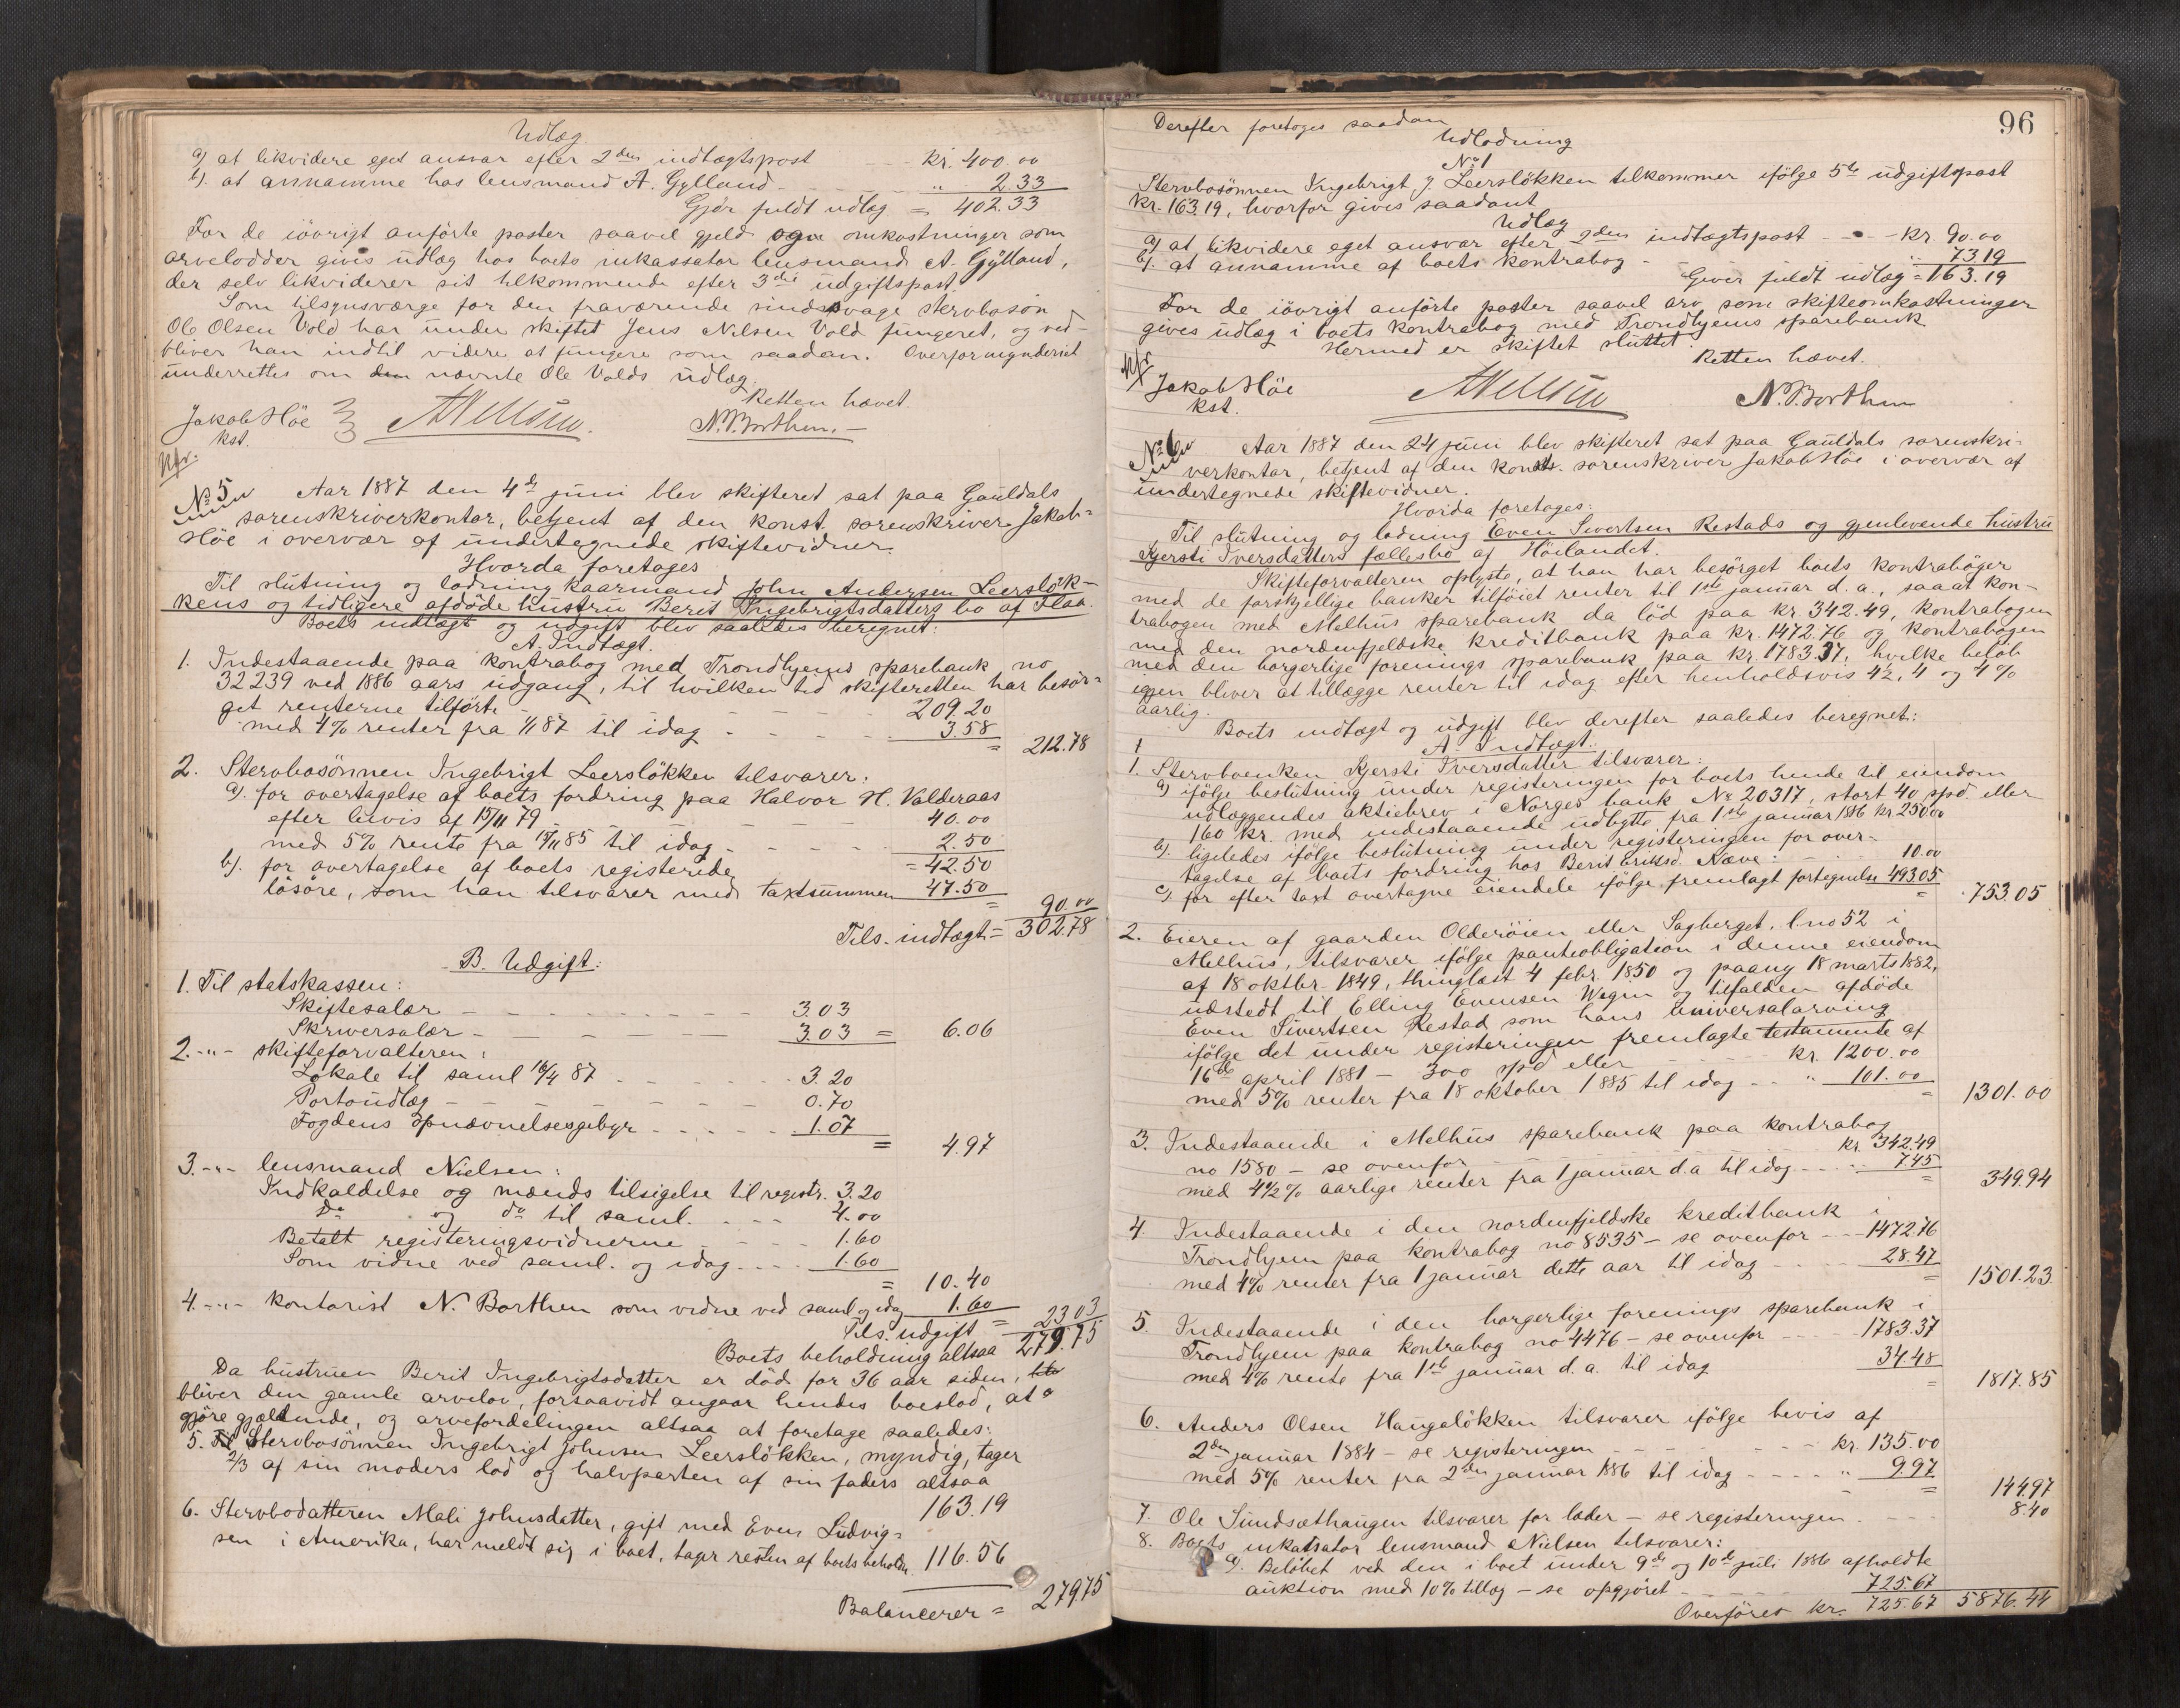 Udlæg
a) at likvidere eget ansvar efter 2den indtægtspost - - kr. 400.00
b). at annamme hos lensmand A. Gylland - - - " 2.33
Gjør fuldt udlæg = 402.33
For de iøvrigt anførte poster saavel gjeld og omkostninger som
arvelodder gives udlæg hos boets inkassator lensmand A. Gylland,
der selv likviderer sit tilkommende efter 3die udgiftspost.
Som tilsynsværge for den fraværende sindssvage stervbosøn
Ole Olsen Vold har under skiftet Jens Nilsen Vold fungeret, og ved-
bliver han indtil videre at fungere som saadan. Overformynderiet
underrettes om den nævnte Ole Volds udlæg.
Retten hævet.
Jakob Höe
kst.
N. Borthen.
Nfr.
No 5 Aar 1887 den 4de juni blev skifteret sat paa Gauldals
sorenskriverkontor, betjent af den konst. sorenskriver Jakob
Höe i overvær af undertegnede skiftevidner.
Hvorda foretoges
Til slutning og lodning kaarmand John Andersen Leersløk-
kens og tidligere afdøde hustru Berit Ingebrigtsdatters bo af Flaa.
Boets indtægt og udgift blev saaledes beregnet:
A. Indtægt.
1. Indestaaende paa kontrabog med Trondhjems sparebank no
32239 ved 1886 aars udgang, til hvilken tid skifteretten har besør-
get renterne tilførte - - - 209.20
med 4% renter fra 1/1 87 til idag - - - 3.58
= 212.78
2. Stervbosønnen Ingebrigt Leersløkken tilsvarer:
a). for overtagelse af boets fordring paa Halvor H. Valderaas
efter bevis af 15/11 79 - - - 40.00
med 5% rente fra 15/11 85 til idag - - - 2.50
= 42.50
b). for overtagelse af boets registerede
løsøre, som han tilsvarer med taxtsummen 47.50
= 90.00
Tils. indtægt = 302.78
B. Udgift:
1. Til statskassen:
Skiftesalær - - - 3.03
Skriversalær - - - 3.03 = 6.06
2. -"- skifteforvalteren:
Lokale til saml 16/4 87 - - - 3.20
Portoudlæg - - - 0.70
Fogdens opnævnelsesgebyr - - - 1.07
= 4.97
3. -"- lensmand Nielsen:
Indkaldelse og mænds tilsigelse til registr. 3.20
Do og do til saml. - - - 4.00
Betalt registeringsvidnerne - - - 1.60
Som vidne ved saml. og idag - - - 1.60
= 10.40
4. -"- kontorist N. Borthen som vidne ved saml og idag 1.60
Tils. udgift = 23.03
Boets beholdning altsaa 279.75
Da hustruen Berit Ingebrigtsdatter er død for 36 aar siden,
bliver den gamle arvelov, forsaavidt angaar hendes boeslod, at
gjøre gjældende, og arvefordelingen altsaa at foretage saaledes:
5. Stervbosønnen Ingebrigt Johnsen Leersløkken, myndig, tager
2/3 af sin moders lod og halvparten af sin faders altsaa
163.19
6. Stervbodatteren Mali Johnsdatter, gift med Even Ludvig-
sen i Amerika, har meldt sig i boet, tager resten af boets beholdn. 116.56
Balancerer = 279.75
96
Derefter foretoges saadan
Udlodning
No 1
Stervbosønnen Ingebrigt J. Leersløkken tilkommer ifølge 5te udgiftspost
kr. 163.19, hvorfor gives saadant
Udlæg
a) at likvidere eget ansvar efter 2den indtægtspost - - kr. 90.00
b). at annamme af boets kontrabog - - " 73.19
Giver fuldt udlæg = 163.19
For de iøvrigt anførte poster saavel arv som skifteomkostninger
gives udlæg i boets kontrabog med Trondhjems sparebank.
Hermed er skiftet sluttet.
Retten hævet.
Nfr.
Jakob Höe
kst.
N. Borthen
No 6 Aar 1887 den 24 juni blev skifteret sat paa Gauldals sorenskri-
verkontor, betjent af den konst. sorenskriver Jakob Höe i overvær af
undertegnede skiftevidner.
Hvorda foretoges:
Til slutning og lodning Even Sivertsen Restads og gjenlevende hustru
Kjersti Iversdatters fællesbo af Höilandet.
Skifteforvalteren oplyste, at han har besørget boets kontrabøger
med de forskjellige banker tilføiet renter til 1ste januar d. a., saaat kon-
trabogen med Melhus sparebank da lød paa kr. 342.49, kontrabogen
med den nordenfjeldske kreditbank paa kr. 1472.76 og kontrabogen
med den borgerlige forenings sparebank paa kr. 1783.37, hvilke beløb
igjen bliver at tillægge renter til idag efter henholdsvis 4½, 4 og 4%
aarlig.
Boets indtægt og udgift blev derefter saaledes beregnet:
A. Indtægt.
1. Stervboenken Kjersti Iversdatter tilsvarer:
a) ifølge beslutning under registeringen for boets hende til eiendom
udlæggendes aktiebrev i Norges bank No 20317, stort 40 spd. eller
160 kr. med indestaaende udbytte fra 1ste januar 1886 kr 250.00
b). ligeledes ifølge beslutning under registeringen for over-
tagelse af boets fordring hos Berit Eriksd. Næve: - - 10.00
c) for efter taxt overtagne eiendele ifølge fremlagt fortegnelse 493.05
= 753.05
2. Eieren af gaarden Olderöien eller Sagberget, l.no 52 i
Melhus, tilsvarer ifølge panteobligation i denne eiendom
af 18 oktbr. 1849, thinglæst 4 febr. 1850 og paany 18 marts 1882,
udstedt til Elling Evensen Wegin og tilfalden afdøde
Even Sivertsen Restad som hans universalarving
ifølge det under registeringen fremlagte testamente af
16de april 1881 - 300 spd eller - - kr. 1200.00
med 5% renter fra 18 oktober 1885 til idag - - " 101.00
= 1301.00
3. Indestaaende i Melhus sparebank paa kontrabog
no 1580 - se ovenfor - - kr. 342.49
med 4½% aarlige renter fra 1 januar d.a til idag - - - 7.45
= 349.94
4 Indestaaende i den nordenfjeldske kreditbank i
Trondhjem paa kontrabog no 8535 - se ovenfor - - 1472.76
med 4% renter fra 1 januar dette aar til idag - - - 28.47
= 1501.23
5. Indestaaende i den borgerlige forenings sparebank i
Trondhjem paa kontrabog no 4476 - se ovenfor - - - 1783.37
med 4% rente fra 1ste januar d.a. til idag 34.48
= 1817.85
6. Anders Olsen Hangaløkken tilsvarer ifølge bevis af
2den januar 1884 - se registeringen - - - kr. 135.00
med 5% renter fra 2den januar 1886 til idag - - - " 9.97
= 144.97
7. Ole Sundsæthaugen tilsvarer for læder - se registeringen - - - 8.40
8. Boets inkassator lensmand Nielsen tilsvarer:
a). Beløbet ved den i boet under 9de og 10de juli 1886 afholdte
auktion med 10% tillæg - se opgjøret - - - 725.67
Overføres kr. 725.67 5876.44